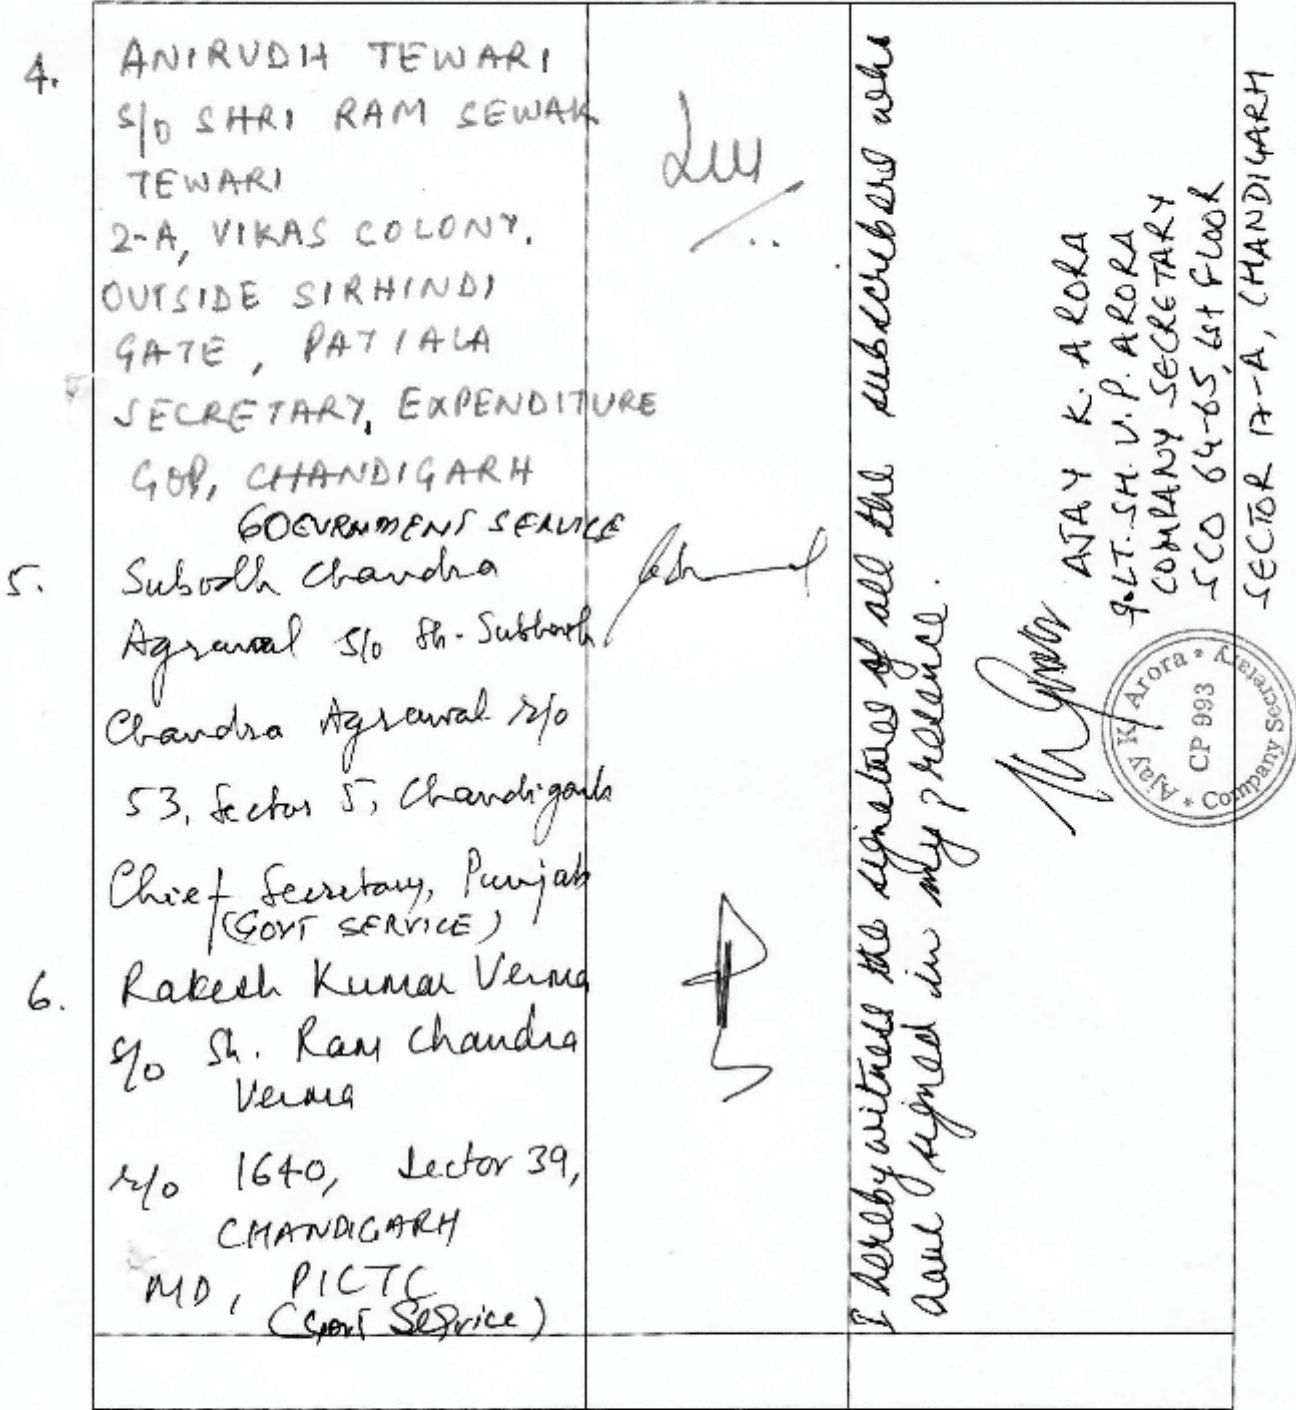 4.
ANIRUDH TEWARI
S/O SHRI RAM SEWAK
TEWARI
2-A, VIKAS COLONY,
OUTSIDE SIRHINDI
GATE, PATIALA
SECRETARY, EXPENDITURE
GOP, CHANDIGARH
GOEVRNMENT SERVICE
5.
Subodh Chandra
Agrawal S/o Sh. Subhash
Chandra Agrawal r/o
53, Sector 5, Chandigarh
Chief Secretary, Punjab
(GOVT SERVICE)
6.
Rakesh Kumar Verma
S/o Sh. Ram Chandra
Verma
r/o 1640, Sector 39,
CHANDIGARH
MD, PICTC
(Govt Service)
I hereby witness the signatures of all the subscribers who
have signed in my presence.
AJAY K. ARORA
S/O LT. SH. V.P. ARORA
COMPANY SECRETARY
SCO 64-65, 1st FLOOR
SECTOR 17-A, CHANDIGARH
Ajay K. Arora * Company Secretary *
CP 993